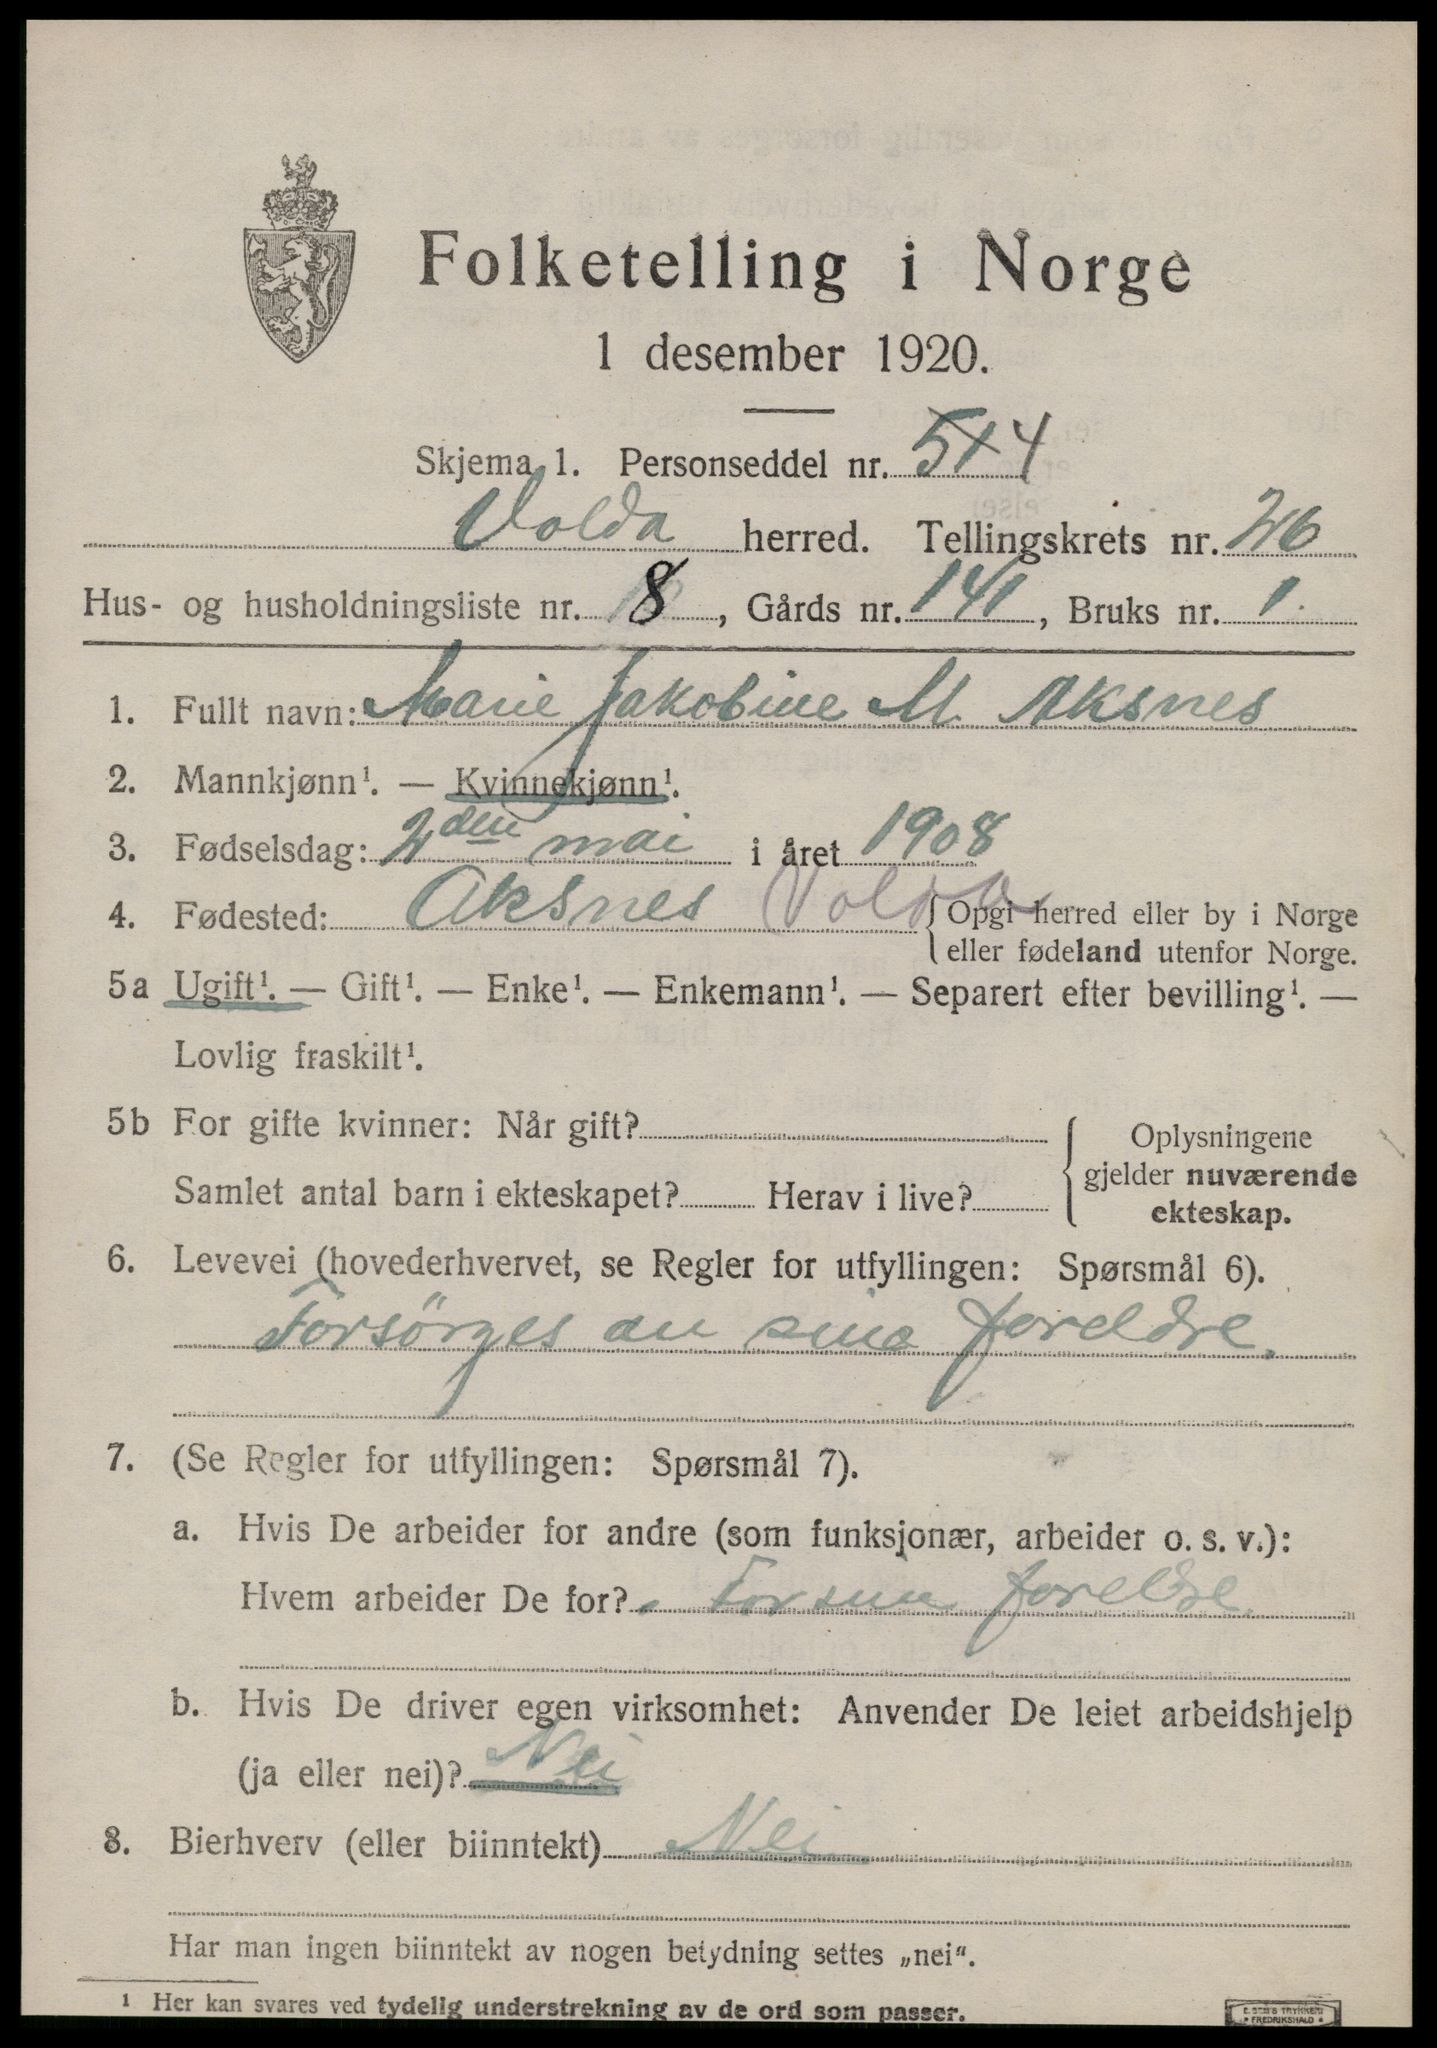 Folketelling i Norge
1 desember 1920.
Skjema 1. Personseddel nr. 4
Volda herred. Tellingskrets nr. 26
Hus- og husholdningsliste nr. 8, Gårds nr. 141, Bruks nr. 1.
1. Fullt navn: Marie Jakobine M. Aksnes
2. Mannkjønn¹. — Kvinnekjønn¹.
3. Fødselsdag: 2den mai i året 1908
4. Fødested: Aksnes Volda { Opgi herred eller by i Norge
eller fødeland utenfor Norge.
5a Ugift¹. — Gift¹. — Enke¹. — Enkemann¹. — Separert efter bevilling¹. —
Lovlig fraskilt¹.
5b For gifte kvinner: Når gift?
Samlet antal barn i ekteskapet? Herav i live?
Oplysningene
gjelder nuværende
ekteskap.
6. Levevei (hovederhvervet, se Regler for utfyllingen: Spørsmål 6).
Forsörges au sine foreldre.
7. (Se Regler for utfyllingen: Spørsmål 7).
a. Hvis De arbeider for andre (som funksjonær, arbeider o. s. v.):
Hvem arbeider De for? For sine foreldre.
b. Hvis De driver egen virksomhet: Anvender De leiet arbeidshjelp
(ja eller nei)? Nei
8. Bierhverv (eller biinntekt) Nei
Har man ingen biinntekt av nogen betydning settes „nei“.
¹ Her kan svares ved tydelig understrekning av de ord som passer.
E. SEM'S TRYKKERI
FREDRIKSHALD